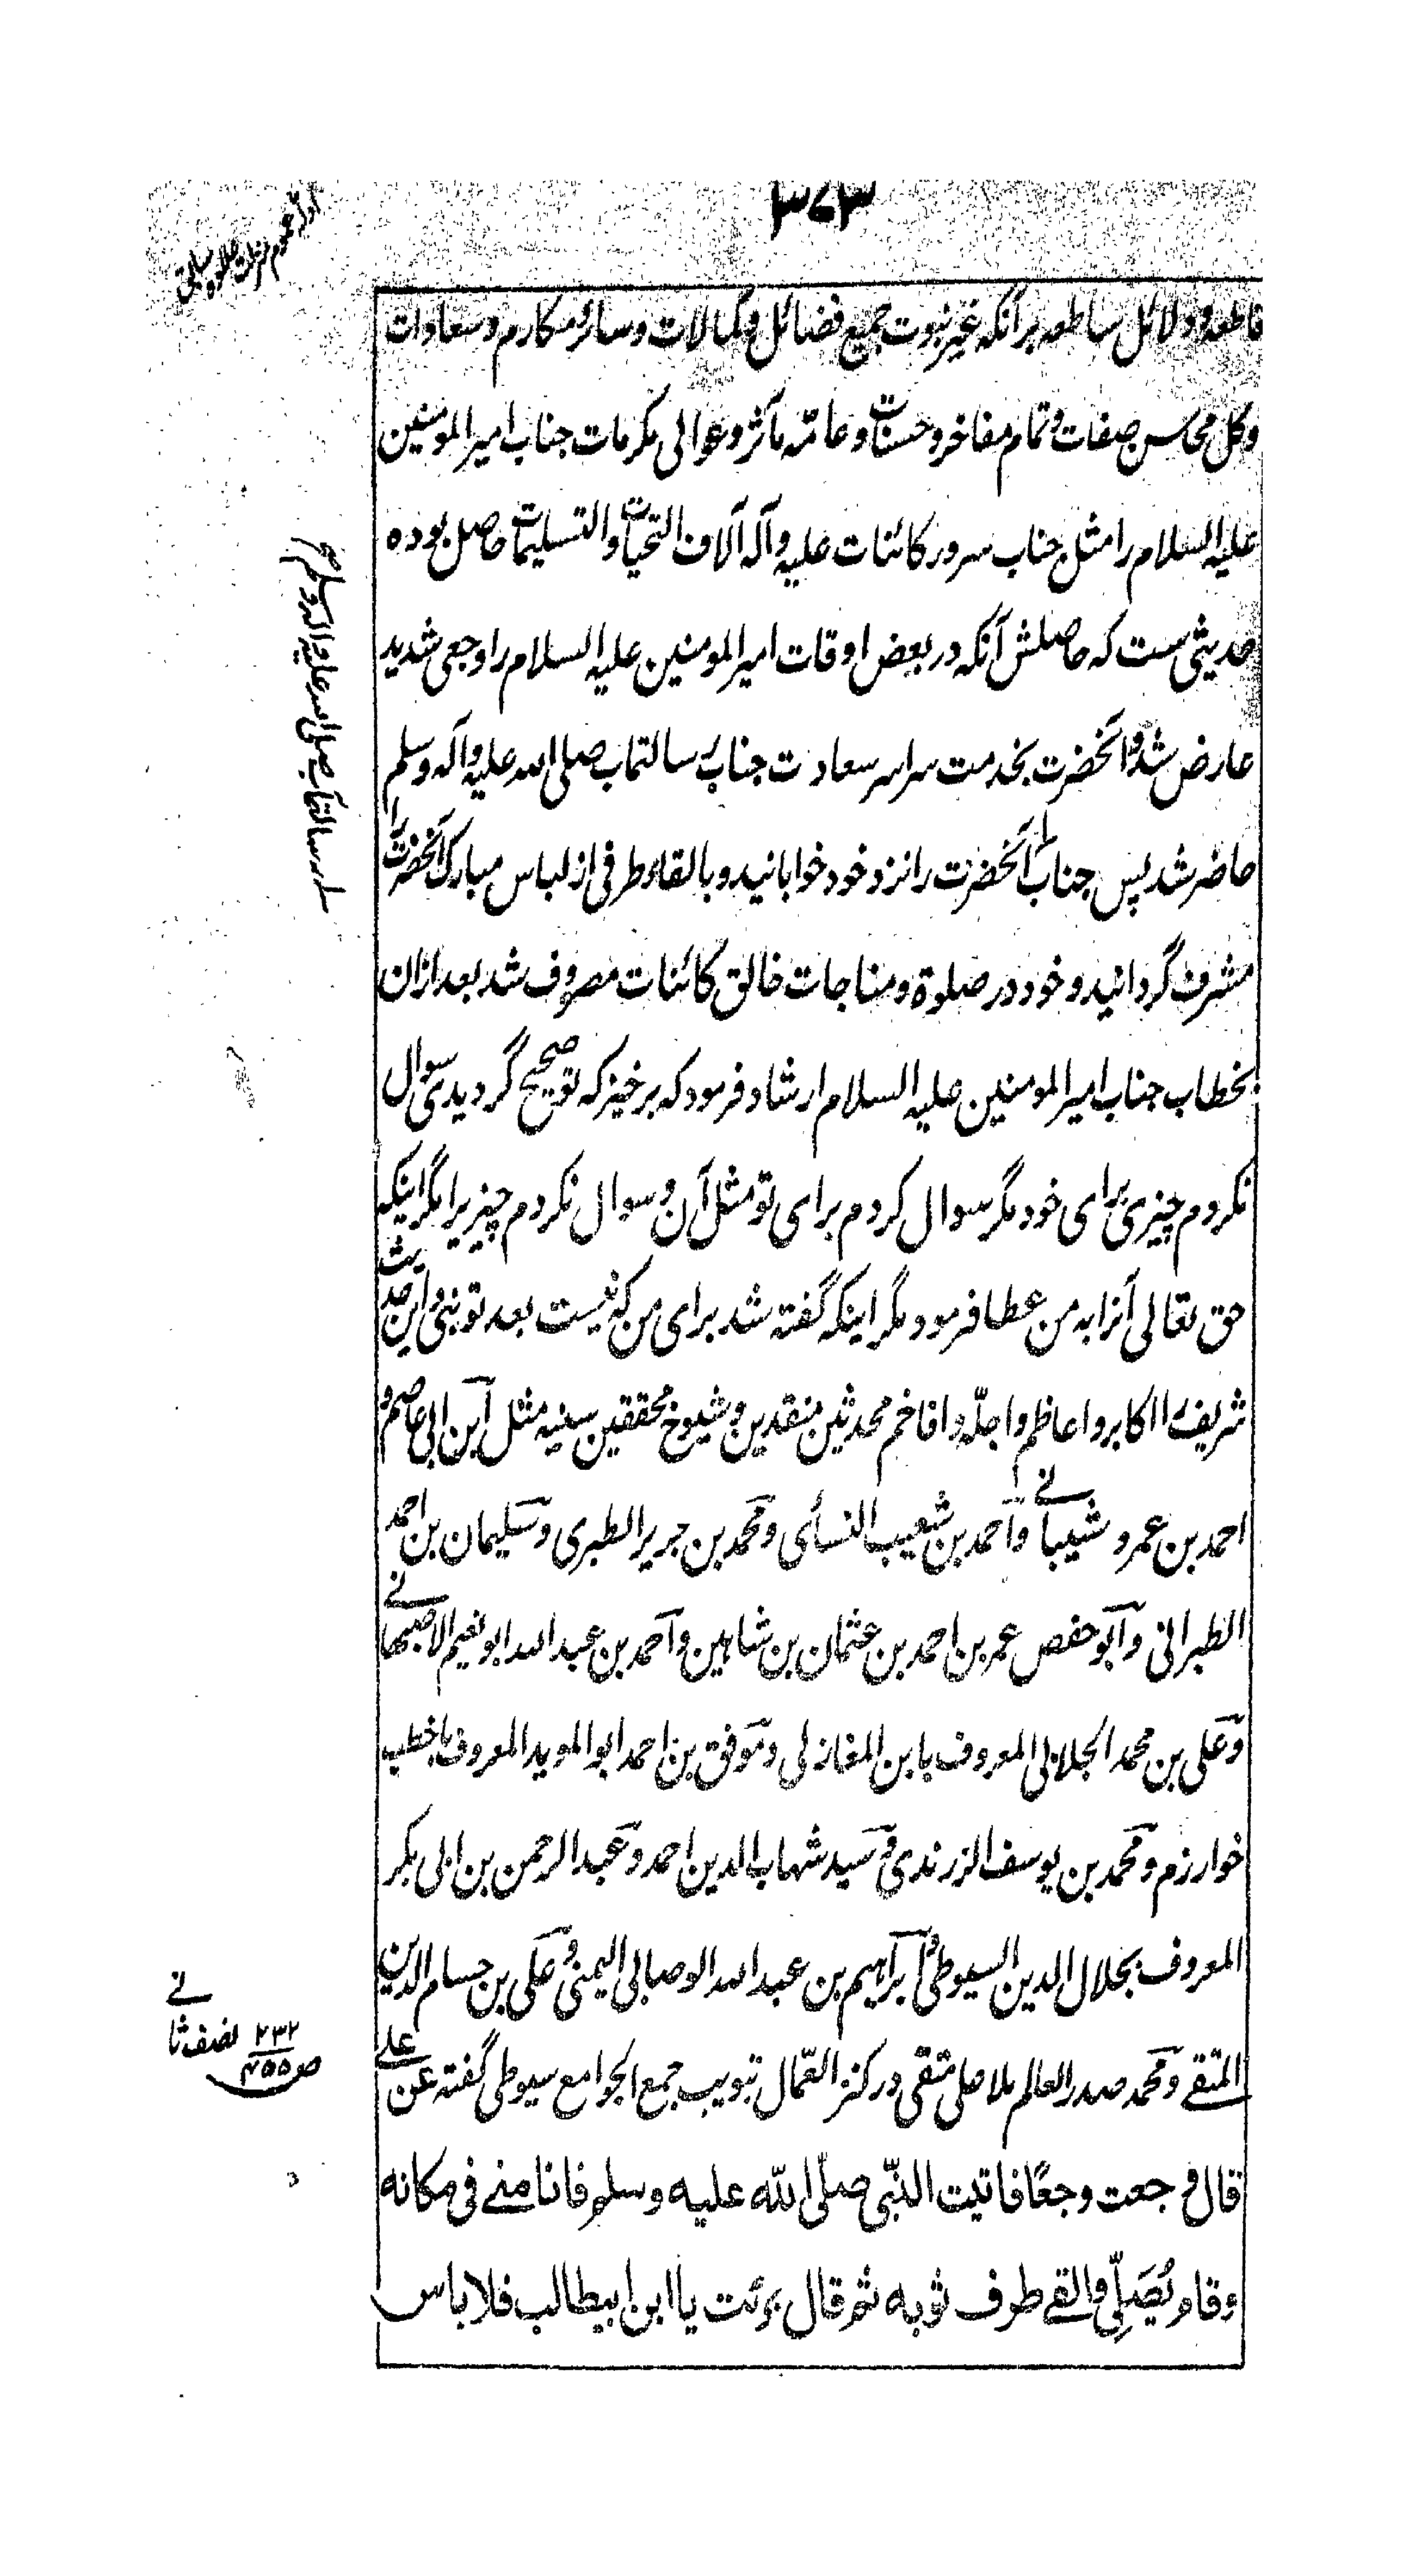 ۳۷۳
قاطعه و دلائل ساطعه برآنکه غیر نبوت جمیع فضائل و کمالات و سائر مکارم و سعادات
و کل محاسن صفات و تمام مفاخر و حسنات و عامّه مآثر و عوالی مکرمات جناب امیر المومنین
علیه السلام را مثل جناب سرور کائنات علیه و آله آلاف التحیات و التسلیمات حاصل بوده
حدیثی ست که حاصلش آنکه در بعض اوقات امیر المومنین علیه السلام را وجعی شدید
عارض شد و آنحضرت بخدمت سراسر سعادت جناب رسالتماب صلی الله علیه و آله وسلم
حاضر شد پس جناب آنحضرت را نزد خود خوابانید و بالقاء طرفی از لباس مبارک آنحضرت را
مشرف گردانید و خود در صلوة و مناجات خالق کائنات مصروف شد بعد ازان
بخطاب جناب امیر المومنین علیه السلام ارشاد فرمود که برخیز که تو صحیح گردیدی سوال
نکردم چیزی برای خود مگر سوال کردم برای تو مثل آن و سوال نکردم چیزیرا مگر اینکه
حق تعالی آنرا به من عطا فرمود مگر اینکه گفته شد برای من که نیست بعد تو نبی و این حدیث
شریف را اکابر و اعاظم و اجلّه و افاخم محدثین منقدین و شیوخ محققین سنیه مثل ابن ابی عاصم و
احمد بن عمرو شیبانے و احمد بن شعیب النسائی و محمد بن جریر الطبری و سلیمان بن احمد
الطبرانی و ابو حفص عمر بن احمد بن عثمان بن شاهین و احمد بن عبد الله ابو نعیم الاصبهانے
و علی بن محمد الجلابی المعروف بابن المغازلی و موفق بن احمد ابو الموید المعروف باخطب
خوارزم و محمد بن یوسف الزرندی و سید شهاب الدین احمد و عبد الرحمن بن ابی بکر
المعروف بجلال الدین السیوطی و ابراهیم بن عبد الله الوصابی الیمنی و علی بن حسام الدین
المتقے و محمد صدر العالم ملا علی متقی در کنز العمّال تبویب جمع الجوامع سیوطی گفته عن علے
قال وجعت وجعًا فاتیت النّبی صلّی الله علیه وسلم فانامنے فی مکانه
وقام یُصَلِّی والقے طرف ثوبه ثم قال برئت یا ابن ابیطالب فلا باس
ـ رسالتمآب صلی الله علیه و آله وسلم
۲۳۲ نصف ثانے
ص ۴۵۵